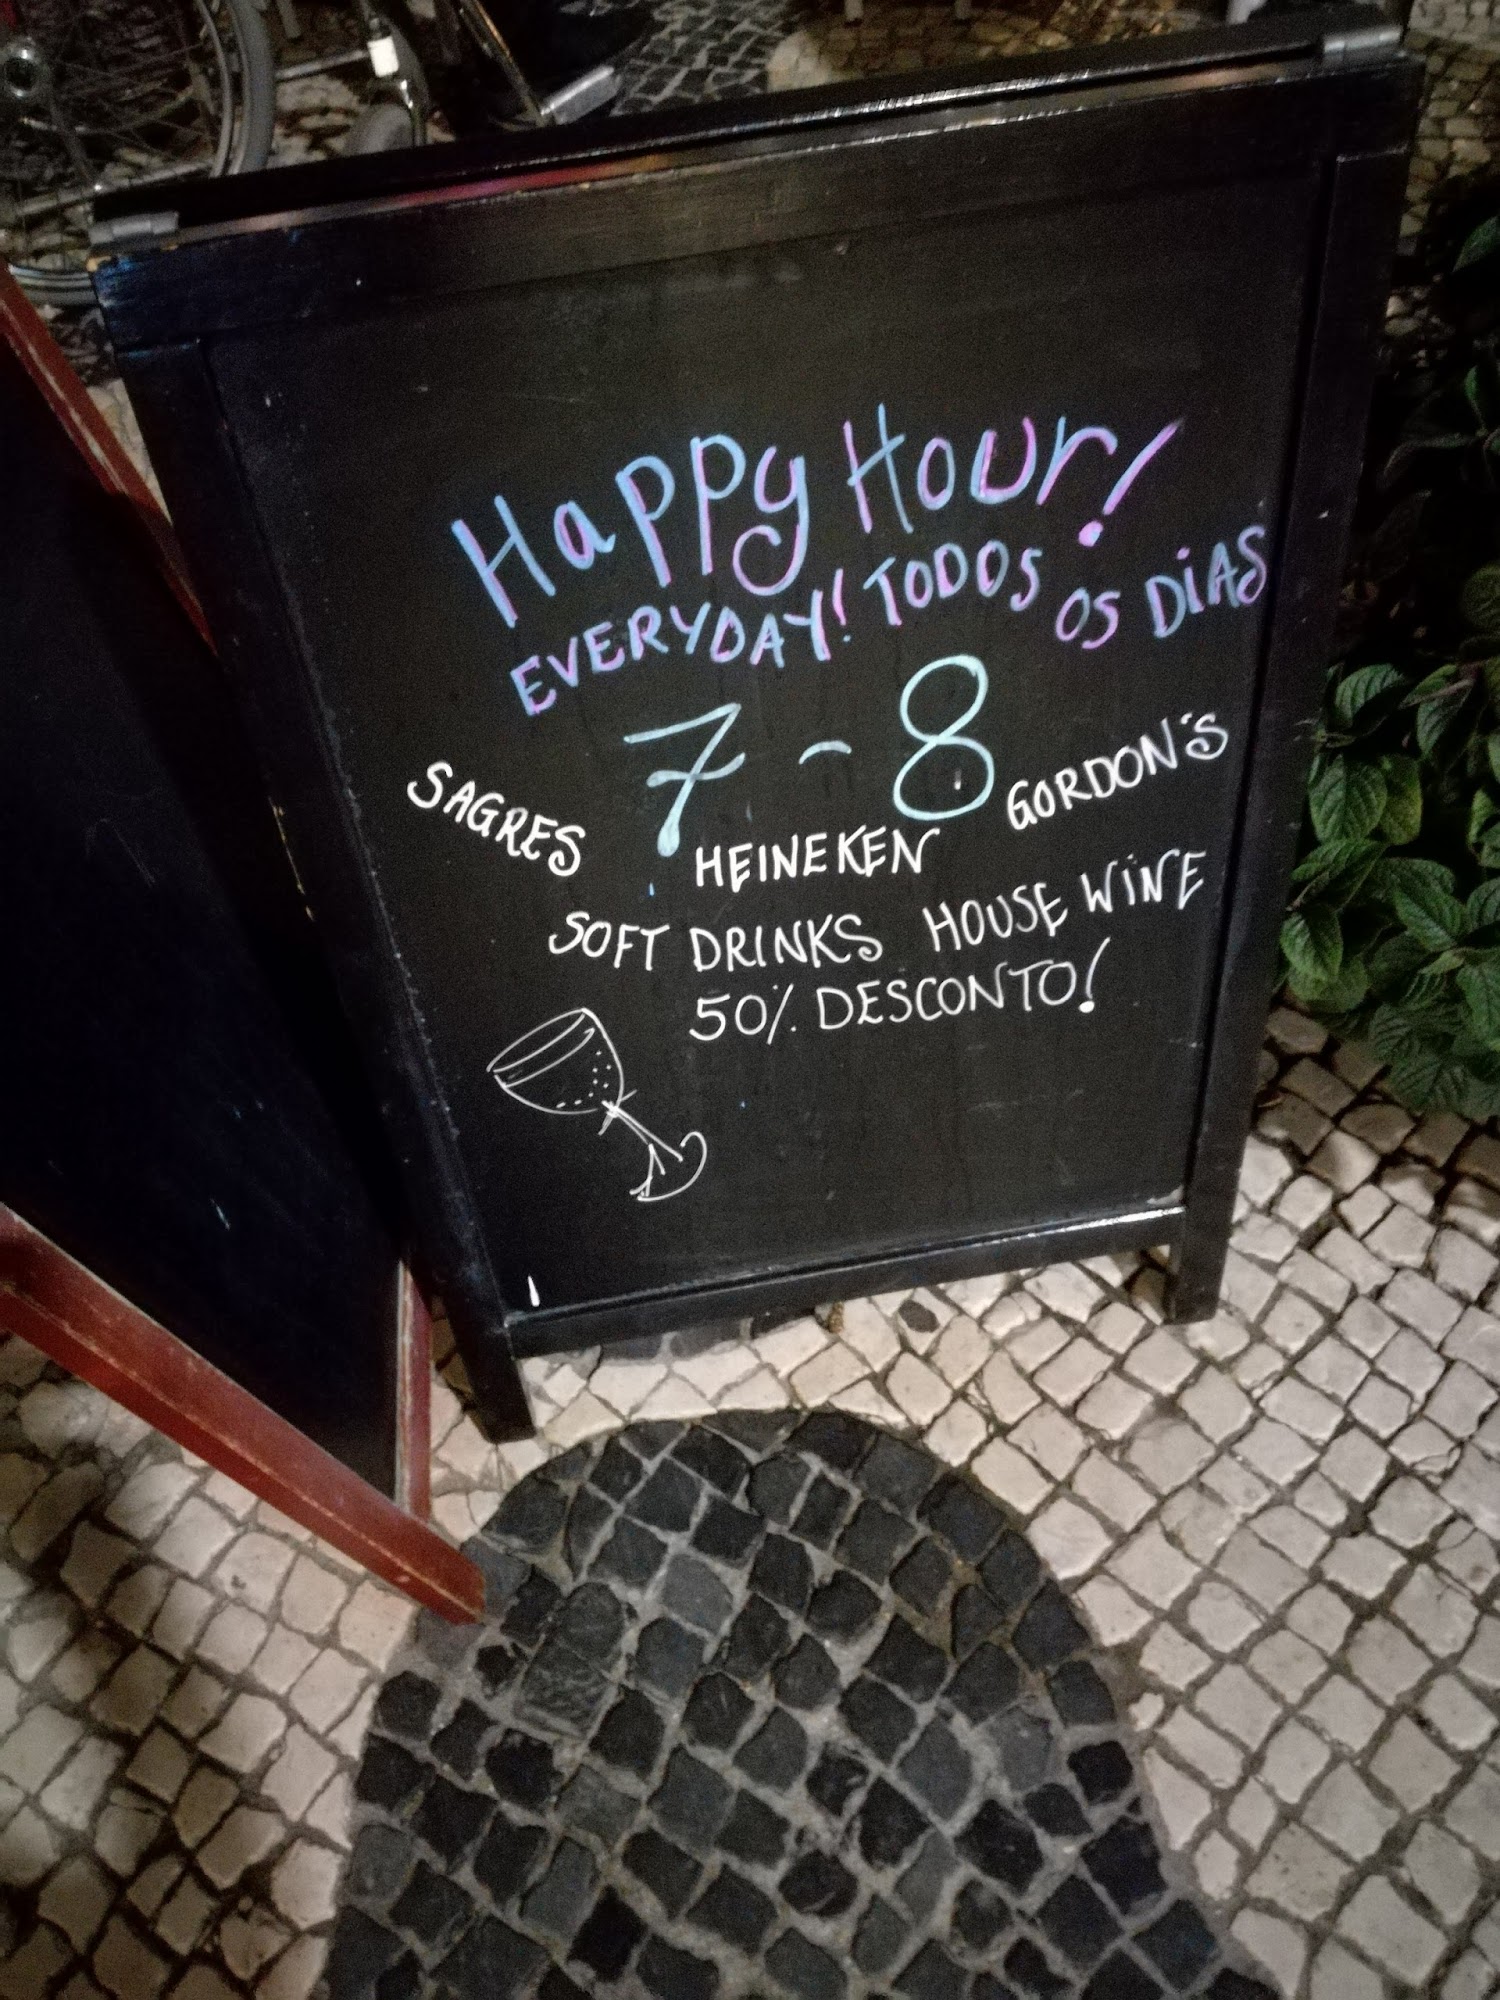 Happy Hour!
EVERYDAY! TODOS OS DIAS
7 - 8
SAGRES HEINEKEN GORDON'S
SOFT DRINKS HOUSE WINE
50% DESCONTO!